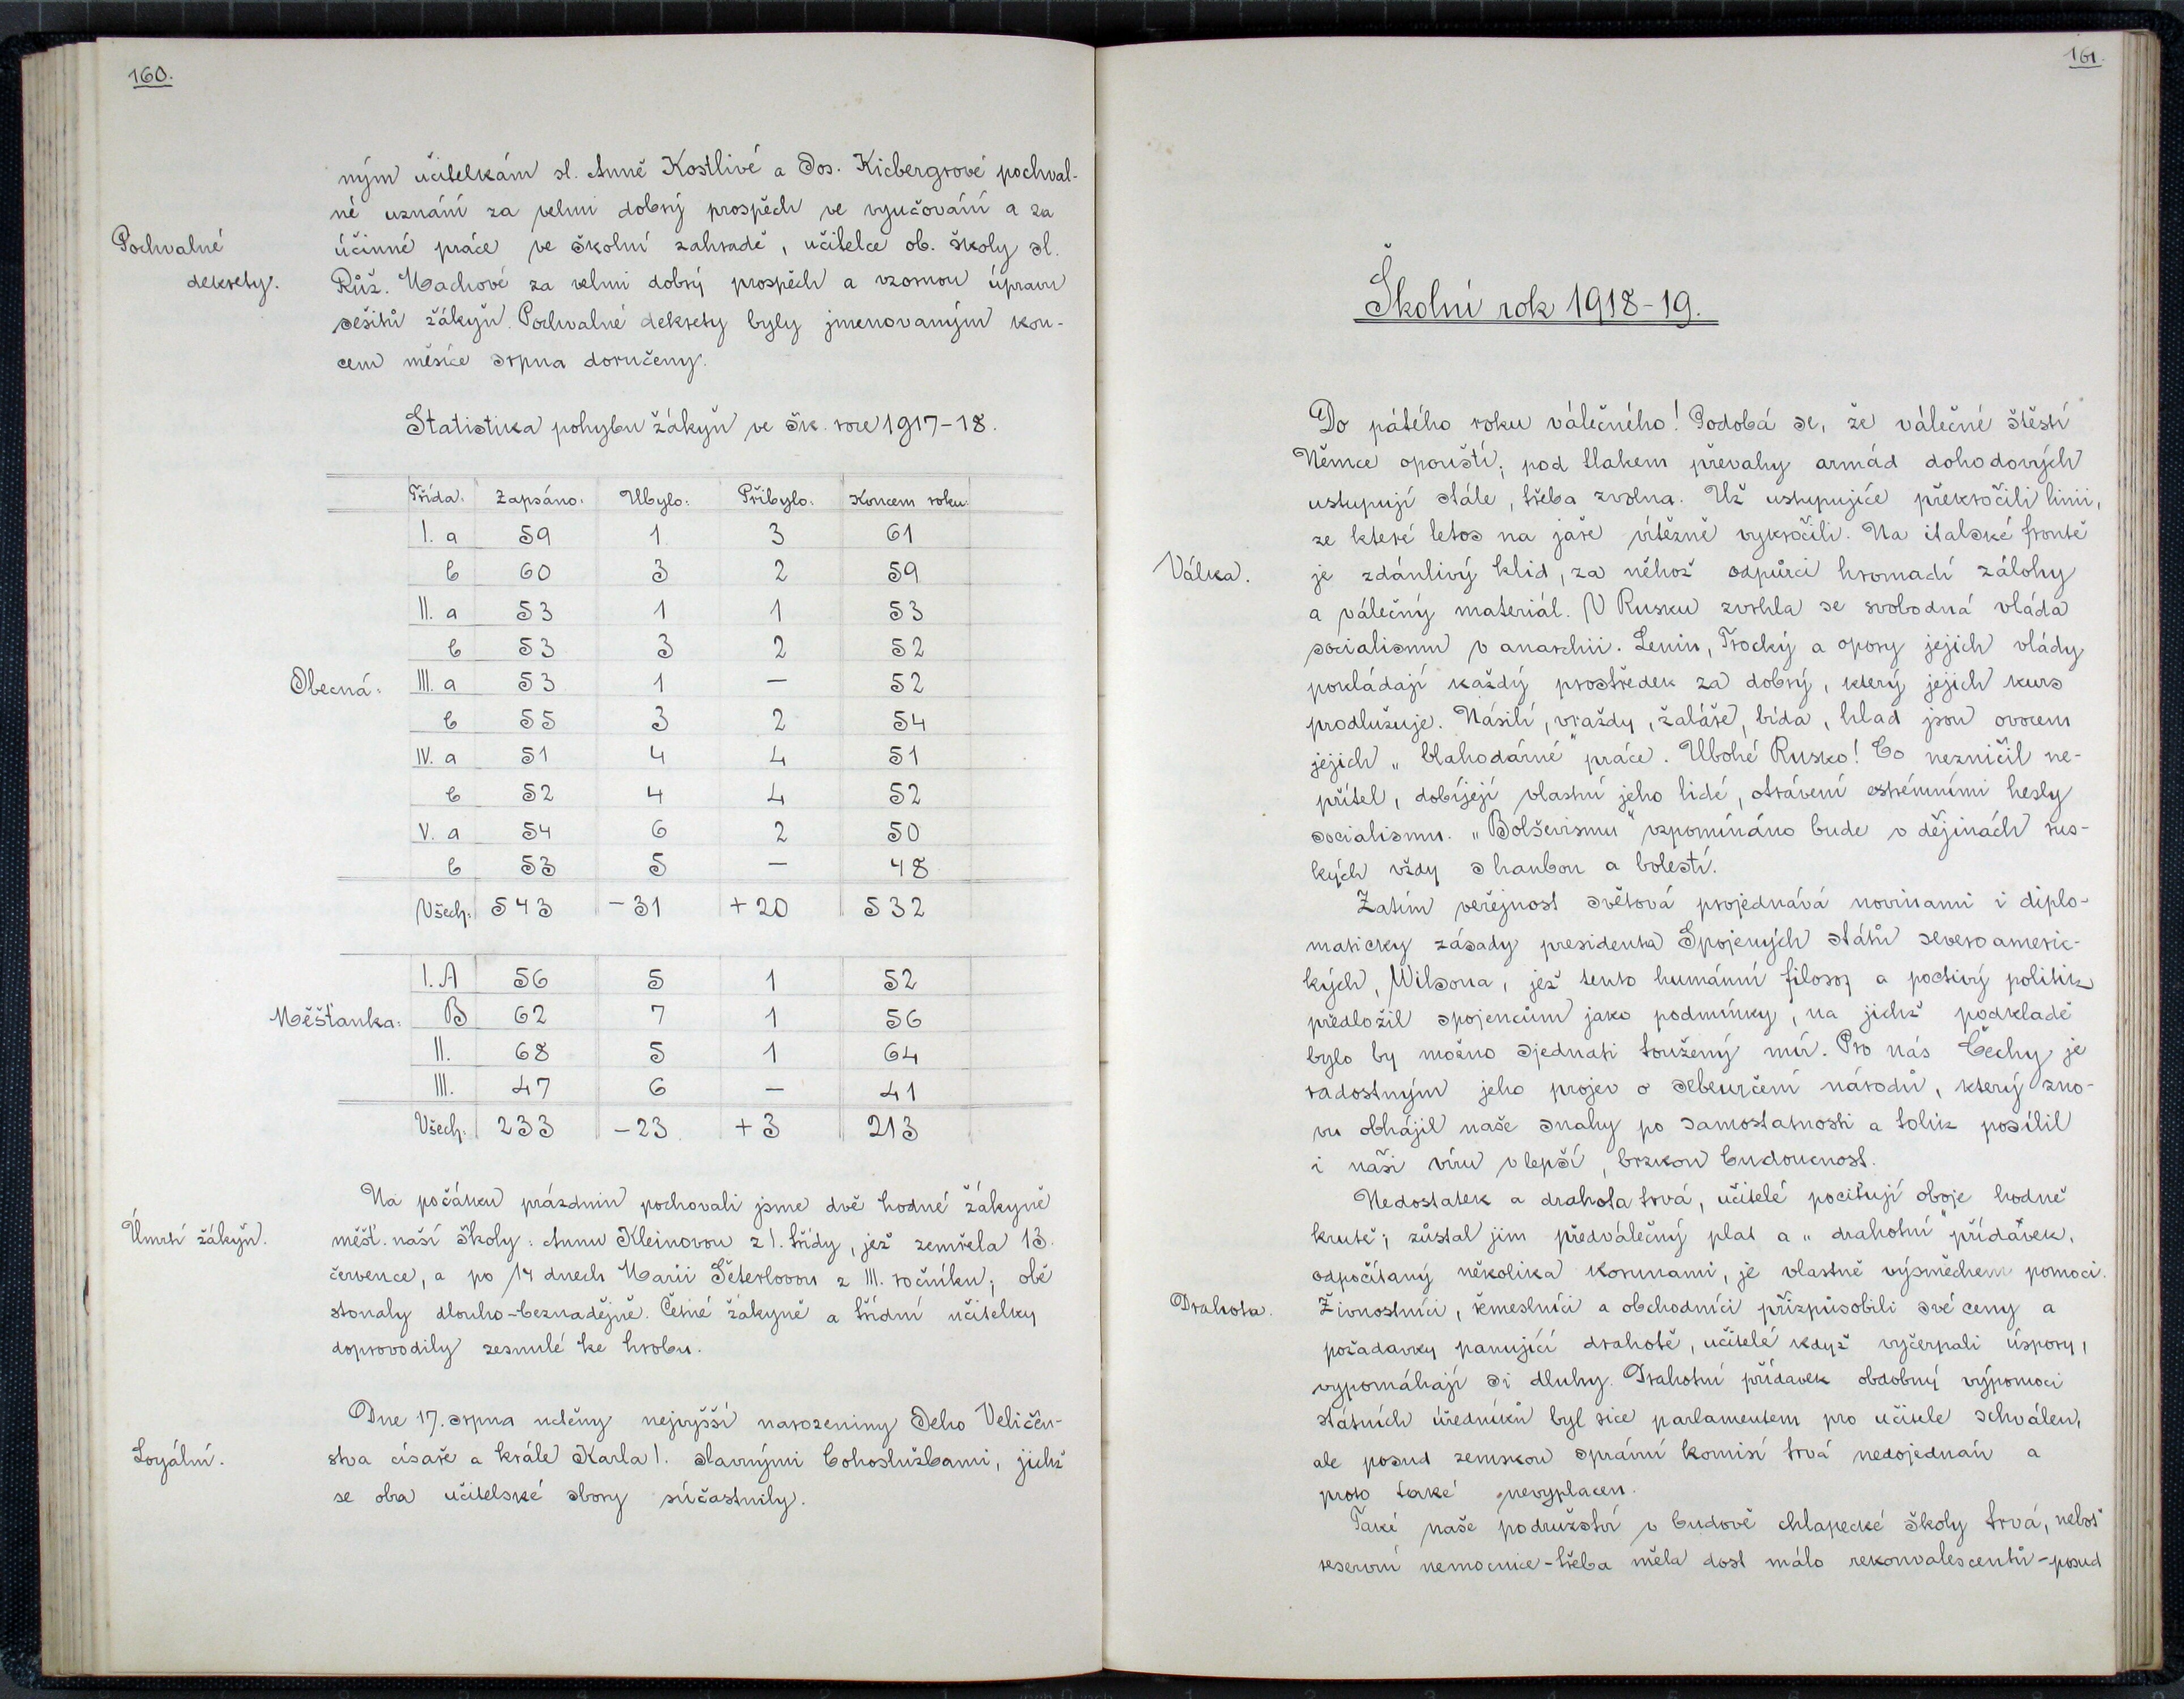 160.
ným učitelkám sl. Anně Kostlivé a Jos. Kicbergrové pochval-
né uznání za velmi dobrý prospěch ve vyučování a za
Pochvalné
účinné práce ve školní zahradě, učitelce ob. školy sl.
dekrety.
Růž. Machové za velmi dobrý prospěch a vzornou úpravu
sešitů žákyň. Pochvalné dekrety byly jmenovaným kon-
cem měsíce srpna doručeny.
Statistika pohybu žákyň ve šk. roce 1917-18.
Třída: Zapsáno: Ubylo: Přibylo: Koncem roku:
I. a 59 1 3 61
b 60 3 2 59
II. a 53 1 1 53
b 53 3 2 52
Obecná: III. a 53 1 — 52
b 55 3 2 54
IV. a 51 4 4 51
b 52 4 4 52
V. a 54 6 2 50
b 53 5 — 48
Všech: 543 -31 +20 532
I. A 56 5 1 52
Měšťanka: B 62 7 1 56
II. 68 5 1 64
III. 47 6 — 41
Všech: 233 -23 +3 213
Na počátku prázdnin pochovali jsme dvě hodné žákyně
Úmrtí žákyň.
měšť. naší školy: Annu Kleinovou z I. třídy, jež zemřela 13.
července, a po 14 dnech Marii Šeterlovou z III. ročníku; obě
stonaly dlouho-beznadějně. Četné žákyně a třídní učitelky
doprovodily zesnulé ke hrobu.
Dne 17. srpna uctěny nejvyšší narozeniny Jeho Veličen-
Loyální.
stva císaře a krále Karla I. slavnými bohoslužbami, jichž
se oba učitelské sbory súčastnily.
161.
Školní rok 1918-19.
Do pátého roku válečného! Podobá se, že válečné štěstí
Němce opouští; pod tlakem převahy armád dohodových
ustupují stále, třeba zvolna. Už ustupujíce překročili linii,
ze které letos na jaře vítězně vykročili. Na italské frontě
Válka.
je zdánlivý klid, za něhož odpůrci hromadí zálohy
a válečný materiál. V Rusku zvrhla se svobodná vláda
socialismu v anarchii. Lenin, Trocký a opory jejich vlády
pokládají každý prostředek za dobrý, který jejich kurs
prodlužuje. Násilí, vraždy, žaláře, bída, hlad jsou ovocem
jejich „blahodárné“ práce. Ubohé Rusko! Co nezničil ne-
přítel, dobíjejí vlastní jeho lidé, otrávení extrémními hesly
socialismu. „Bolševismu“ vzpomínáno bude v dějinách rus-
kých vždy s hanbou a bolestí.
Zatím veřejnost světová projednává novinami i diplo-
maticky zásady presidenta Spojených států severoameric-
kých, Wilsona, jež tento humánní filosof a poctivý politik
předložil spojencům jako podmínky, na jichž podkladě
bylo by možno sjednati toužený mír. Pro nás Čechy je
radostným jeho projev o sebeurčení národů, který zno-
vu obhájil naše snahy po samostatnosti a tolik posílil
i naši víru v lepší, brzkou budoucnost.
Nedostatek a drahota trvá, učitelé pociťují oboje hodně
krutě; zůstal jim předválečný plat a „drahotní“ přídavek,
odpočítaný několika korunami, je vlastně výsměchem pomoci.
Drahota.
Živnostníci, řemeslníci a obchodníci přizpůsobili své ceny a
požadavky panující drahotě, učitelé když vyčerpali úspory,
vypomáhají si dluhy. Drahotní přídavek obdobný výpomoci
státních úředníků byl sice parlamentem pro učitele schválen,
ale posud zemskou správní komisí trvá nedojednán a
proto také nevyplacen.
Také naše podružství v budově chlapecké školy trvá, neboť
reservní nemocnice-třeba měla dost málo rekonvalescentů-posud